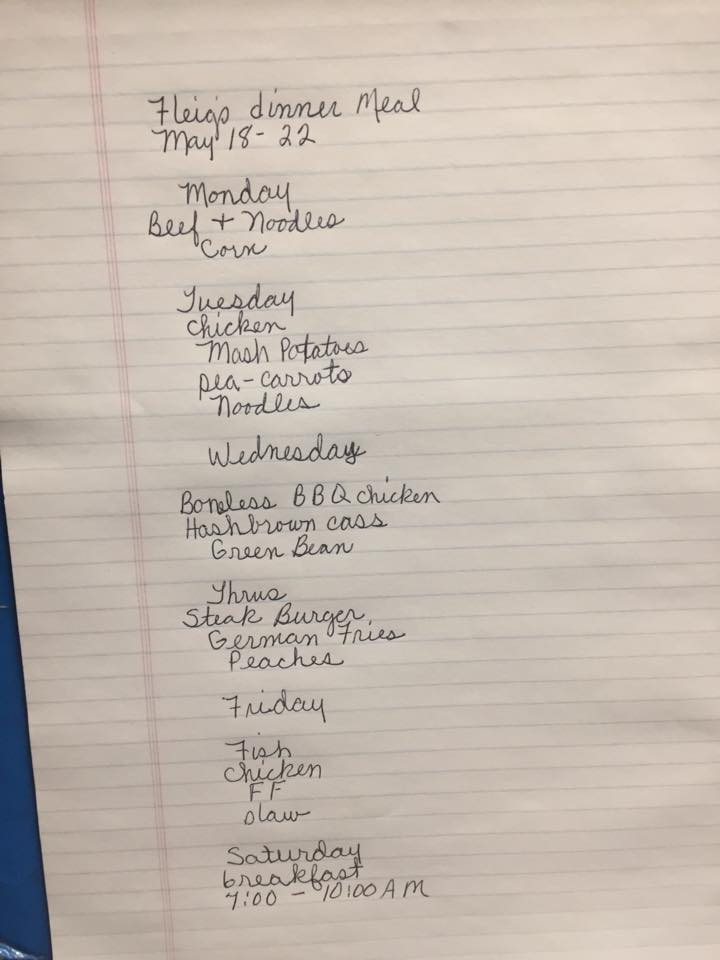 Fleig's dinner Meal
May 18-22
Monday
Beef + Noodles
Corn
Tuesday
chicken
Mash Potatoes
pea-carrots
Noodles
Wednesday
Boneless BBQ chicken
Hashbrown cass
Green Bean
Thrus
Steak Burger
German Fries
Peaches
Friday
Fish
chicken
FF
slaw
Saturday
breakfast
7:00 - 10:00 AM